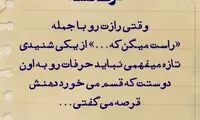 وقتی رازت رو با جمله
«راست میگن که...» از یکی شنیدی
تازه میفهمی نباید حرفات رو به اون
دوستت که قسم می خورد دهنش
قرصه می گفتی...